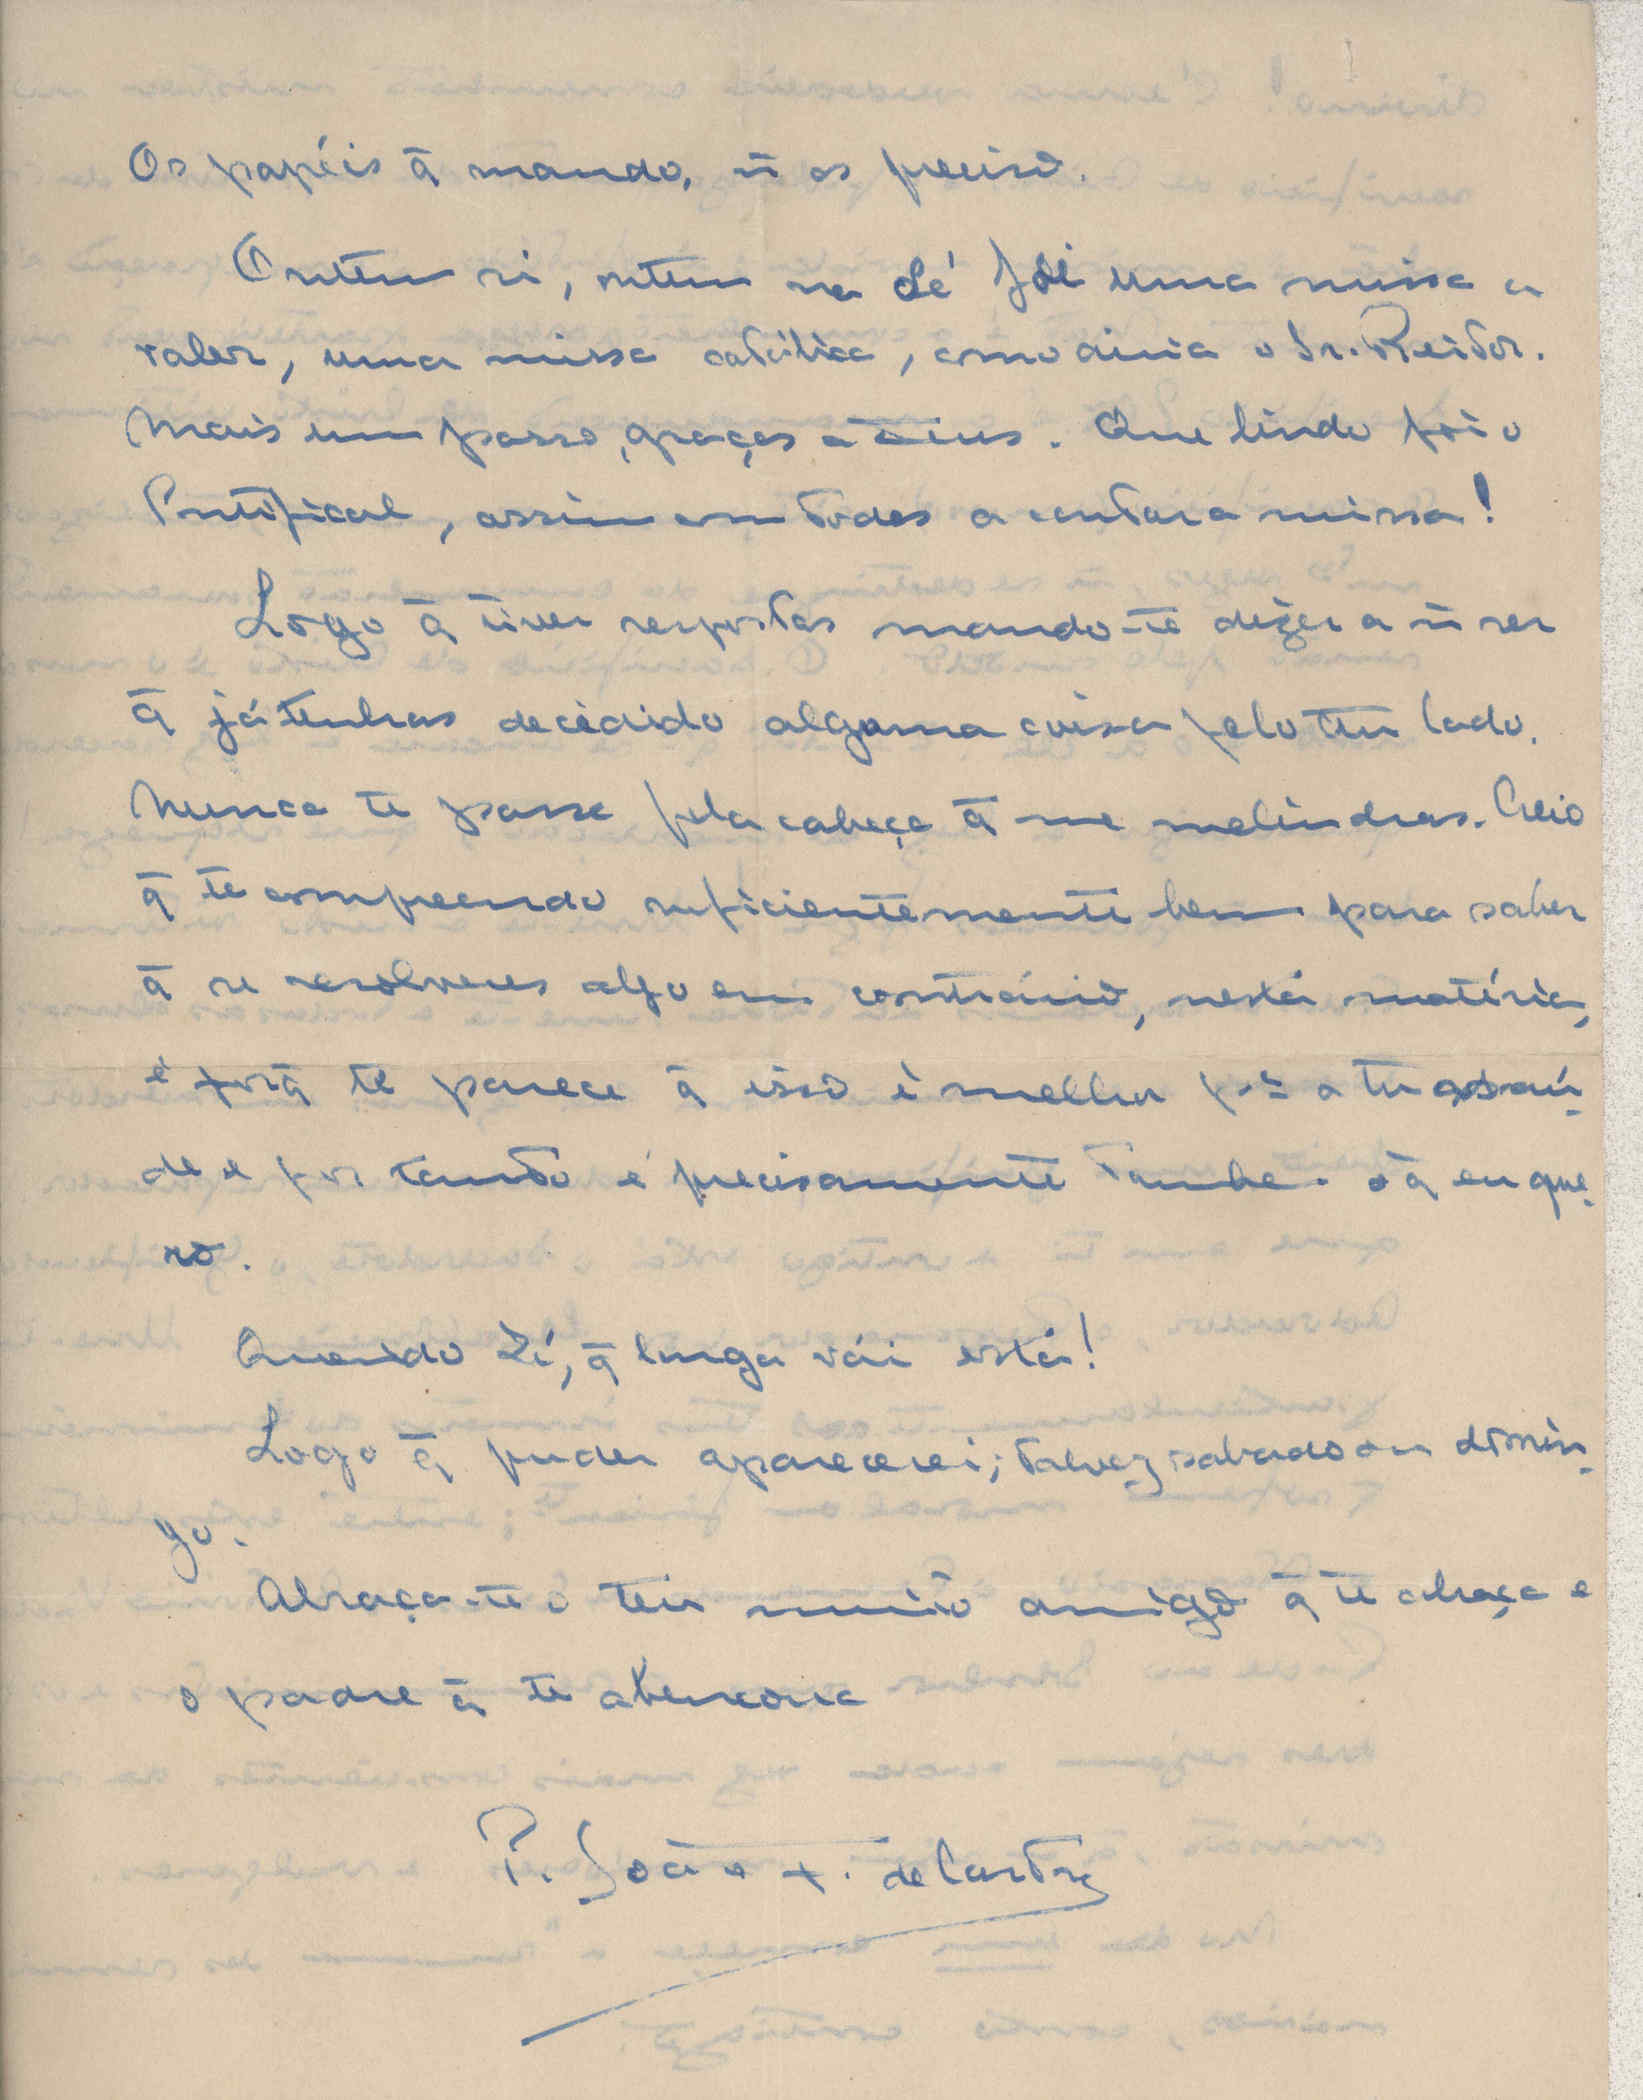 Os papéis q̃ mando, ñ os preciso.
Ontem si, ontem na Sé foi uma missa a
valer, uma missa católica, como diria o Sr. Reitor.
Mais um passo, graças a Deus. Que lindo foi o
Pontifical, assim com todos a cantar a missa!
Logo q̃ tiver respostas mando-te dizer a ñ ser
q̃ já tenhas decidido alguma coisa pelo teu lado.
Nunca te passe pela cabeça q̃ me melindras. Creio
q̃ te compreendo suficientemente bem para saber
q̃ se resolveres algo em contrário, nesta matéria,
é porq̃ te parece q̃ isso é melhor p.ª a tua saú-
de e por tanto é precisamente tambe. o q̃ eu que-
ro.
Querido Zé, q̃ longa vái esta!
Logo q̃ puder aparecerei; talvez sabado ou domin-
go.
Abraça-te o teu muito amigo q̃ te abraça e
o padre q̃ te abençoa
P. João + . de Castro